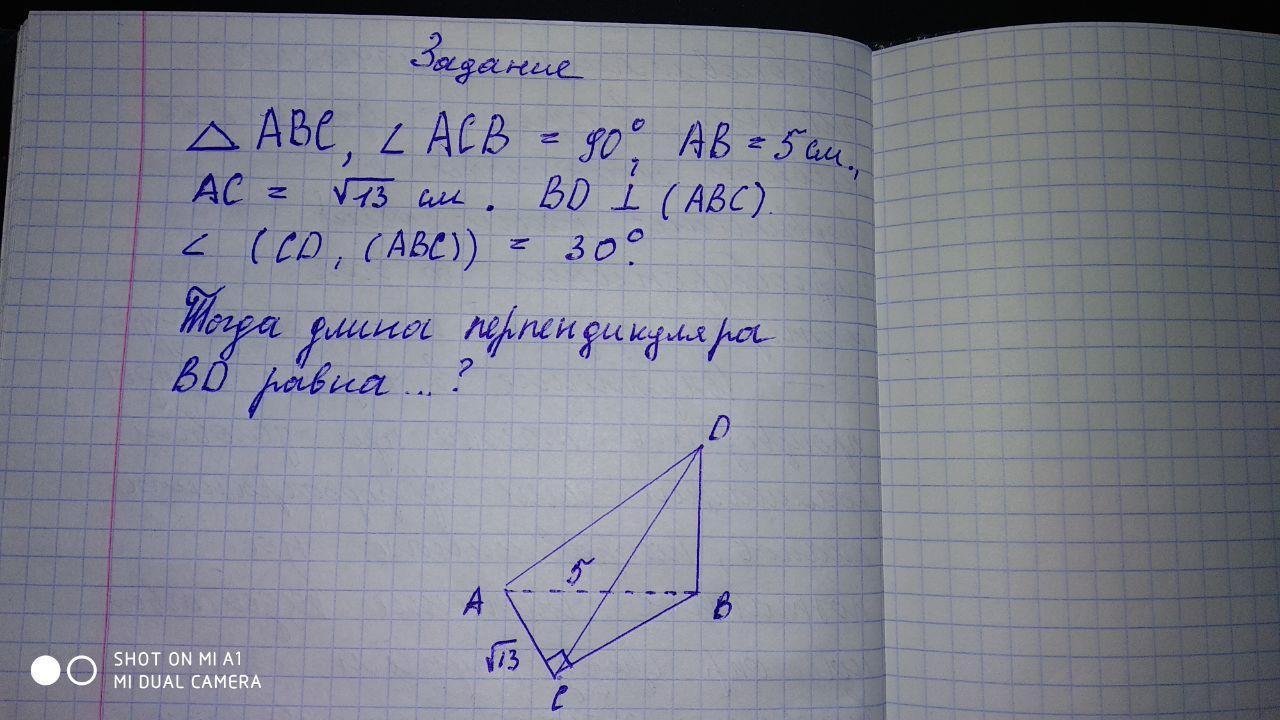 Задание
△ ABC, ∠ ACB = 90°, AB = 5 см.,
AC = √13 см. BD ⊥ (ABC).
∠ (CD, (ABC)) = 30°.
Тогда длина перпендикуляра
BD равна ... ?
D
5
A
B
√13
C
SHOT ON MI A1
MI DUAL CAMERA